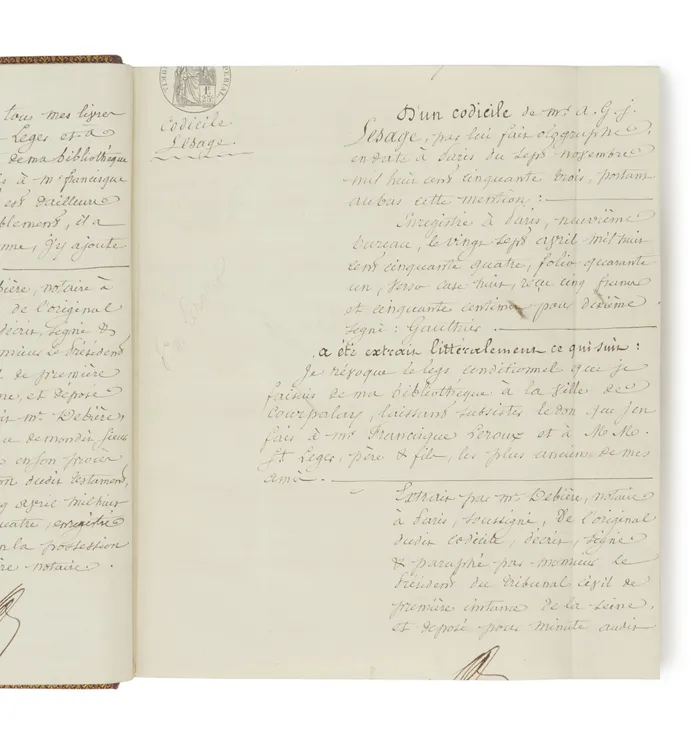 tous mes livres
Leges et a
de ma bibliothèque
à Mr francisque
est d'ailleurs
il a
j'y ajoute
notaire à
de l'original
décrit, signé &
le Président
de première
et déposé
Mr Debière,
demondit sieur
en son procès
dudit testament,
avril mil huit
quatre, enregistré
la possession
notaire.
Codicile
Lesage.
D'un codicile de Mr A. G. J.
Lesage, par lui fait olographe,
en date à Paris du sept novembre
mil huit cent cinquante trois, portant
au bas cette mention :
Enregistré à Paris, neuvième
bureau, le vingt sept avril mil huit
cent cinquante quatre, folio quarante
un, verso case huit, reçu cinq francs
et cinquante centimes pour dixième
signé : Gauthier.
a été extrait littéralement ce qui suit :
Je révoque le legs conditionnel que je
faisais de ma bibliothèque à la Ville de
Courpalay, laissant subsister le don que j'en
fais à Mr Francisque Leroux et à M. M.
St Leges, père & fils, les plus anciens de mes
amis.
Extrait par Mr Debière, notaire
à Paris, soussigné, De l'original
dudit codicile, décrit, signé
& paraphé par monsieur le
Président du Tribunal civil de
première instance de la Seine,
et déposé pour minute audit